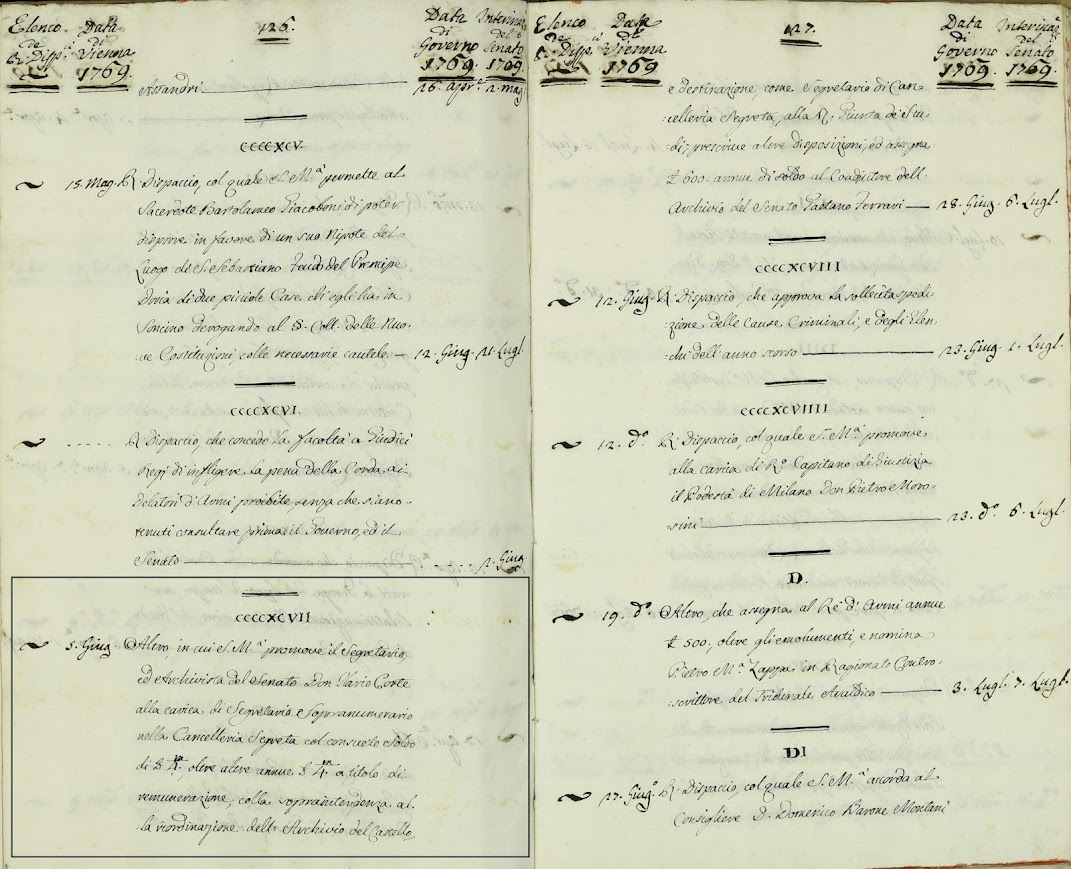 Elenco Data 126. Data Interinaz.
de di di del
R. Disp.i Vienna Governo Senato
1769. 1769. 1769.
Assandri 26. apr.e 2. mag.
CCCCXCV.
15. Mag. R. Dispaccio, col quale S. M.a permette al
Sacerdote Bartolameo Giacoboni di poter
disporre in favore di un suo Nipote del
Luogo di S. Sebastiano Feudo del Prencipe
Doria di due picciole Case ch'egli ha in
Soncino derogando al §. Coll. delle Nuo-
ve Costituzioni, colle necessarie cautele 12. Giug. 21. Lugl.
CCCCXCVI.
R. Dispaccio, che concede la facoltà a Giudici
Regj di infligere la pena della Corda ai
Delatori d'Armi proibite, senza che siano
tenuti consultare prima il Governo, ed il
Senato 2. Giug
CCCCXCVII
5. Giug Altro, in cui S. M.a promove il Segretario,
ed Archivista del Senato Don Ilario Corte
alla carica di Segretario Sopranumerario
nella Cancelleria Segreta col consueto Soldo
di £ 4.m, oltre altre annue £ 4.m a titolo di
remunerazione, colla sopraintendenza al-
la riordinazione dell'Archivio del Castello,
Elenco Data 127. Data Interinaz.
de di di del
R. Disp.i Vienna Governo Senato
1769. 1769. 1769.
e destinazione, come Segretario di Can-
celleria Segreta, alla R. Giunta de' Stu-
dj; prescrive altre disposizioni, ed assegna
£ 600. annue di soldo al Coaditore dell'
Archivio del Senato Gaetano Ferrari 28. Giug. 6. Lugl.
CCCCXCVIII
12. Giug. R. Dispaccio, che approva la sollecita spedi-
zione delle Cause Criminali, e degli Elen-
chi dell'anno scorso 23. Giug. 1. Lugl.
CCCCXCVIIII
12. d.o R. Dispaccio, col quale S. M.a promove
alla carica di R.o Capitano di Giustizia
il Podestà di Milano Don Pietro Moro-
sini 23. d.o 6. Lugl.
D.
19. d.o Altro, che assegna al Rè d'Armi annue
£ 500, oltre gli emolumenti, e nomina
Pietro M.a Zappa in Ragionato Contro-
scrittore del Tribunale Araldico 3. Lugl. 7. Lugl.
DI
27. Giug.o R. Dispaccio, col quale S. M.a accorda al
Consigliere D. Domenico Barone Montani